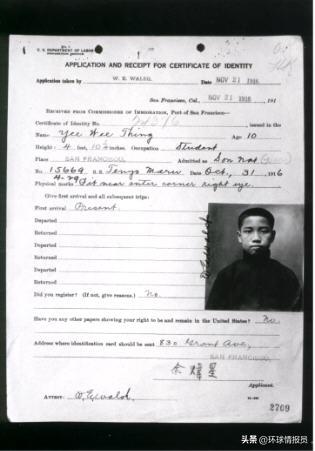 U. S. DEPARTMENT OF LABOR
IMMIGRATION SERVICE
APPLICATION AND RECEIPT FOR CERTIFICATE OF IDENTITY
Application taken by W. E. WALSH. Date NOV 21 1916
San Francisco, Cal., NOV 21 1916 191
RECEIVED FROM COMMISSIONER OF IMMIGRATION, Port of San Francisco—
Certificate of Identity No. issued in the
Name Yee Wee Thing Age 10
Height: 4 feet, 10½ inches. Occupation Student
Place SAN FRANCISCO. Admitted as Son Nat
No. 15669 S.S. Tenyo Maru Date Oct, 31 1916
4-29
Physical marks Pit near outer corner right eye.
Give first arrival and all subsequent trips:
First arrival Present.
Departed
Returned
Departed
Returned
Departed
Returned
Did you register? (If not, give reasons.) No.
Have you any other papers showing your right to be and remain in the United States? No.
Address where identification card should be sent 830 Grant Ave,
SAN FRANCISCO.
余煒星
Applicant.
ATTEST:
2709
头条 @环球情报员